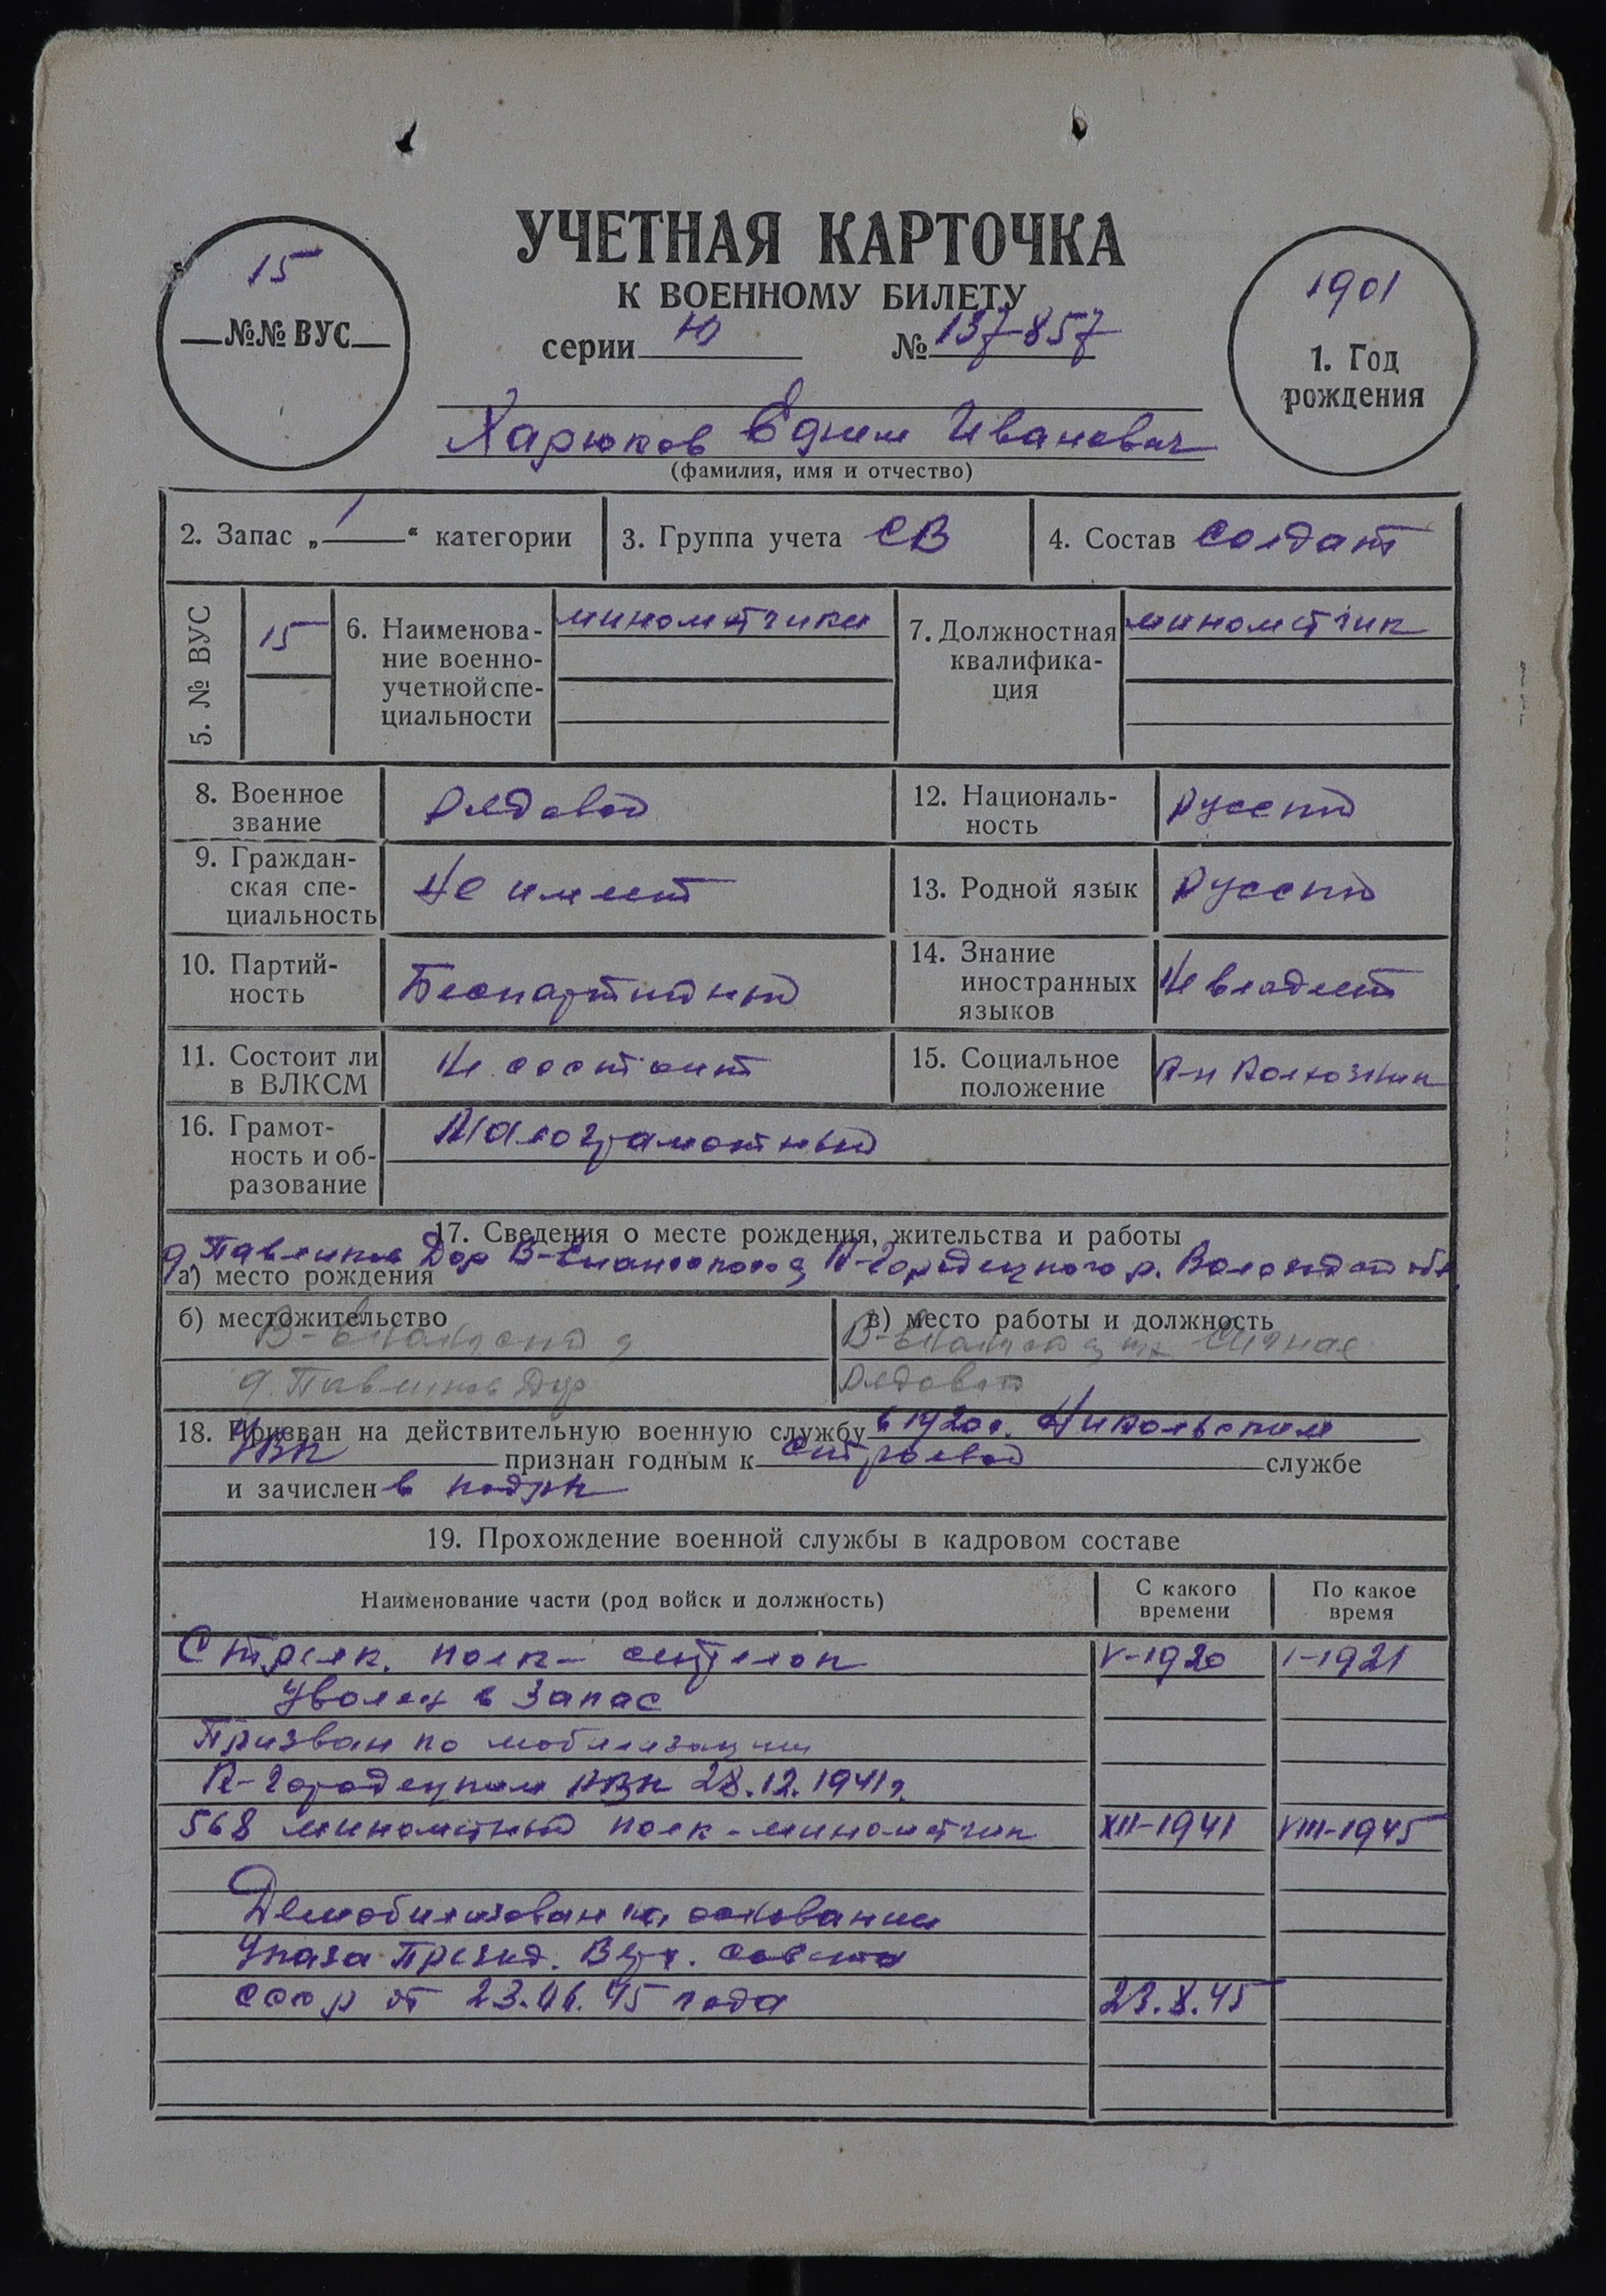 УЧЕТНАЯ КАРТОЧКА
К ВОЕННОМУ БИЛЕТУ
серии Ю № 137857
15
№№ ВУС
1901
1. Год
рождения
Харюков Ефим Иванович
(фамилия, имя и отчество)
2. Запас „1“ категории
3. Группа учета СВ
4. Состав солдат
5. № ВУС
15
6. Наименова-
ние военно-
учетной спе-
циальности
минометчики
7. Должностная
квалифика-
ция
минометчик
8. Военное
звание
Рядовой
12. Националь-
ность
Русский
9. Граждан-
ская спе-
циальность
Не имеет
13. Родной язык
Русский
10. Партий-
ность
Беспартийный
14. Знание
иностранных
языков
Не владеет
11. Состоит ли
в ВЛКСМ
Не состоит
15. Социальное
положение
К-н Колхозник
16. Грамот-
ность и об-
разование
Малограмотный
17. Сведения о месте рождения, жительства и работы
а) место рождения
д. Павликов Дор К-Городецкого р. Вологодской обл
б) местожительство
д. Павликов Дор
в) место работы и должность
Рядовой
18. Призван на действительную военную службу в 1920 г. Никольским
УВК признан годным к строевой службе
и зачислен в
19. Прохождение военной службы в кадровом составе
Наименование части (род войск и должность)
С какого
времени
По какое
время
Стрелк. полк - стрелок V-1920 I-1921
Уволен в запас
Призван по мобилизации
К-Городецким РВК 28.12.1941г.
568 минометный полк - минометчик XII-1941 VIII-1945
Демобилизован на основании
Указа Презид. Верх. Совета
СССР от 23.06.45 года 23.8.45